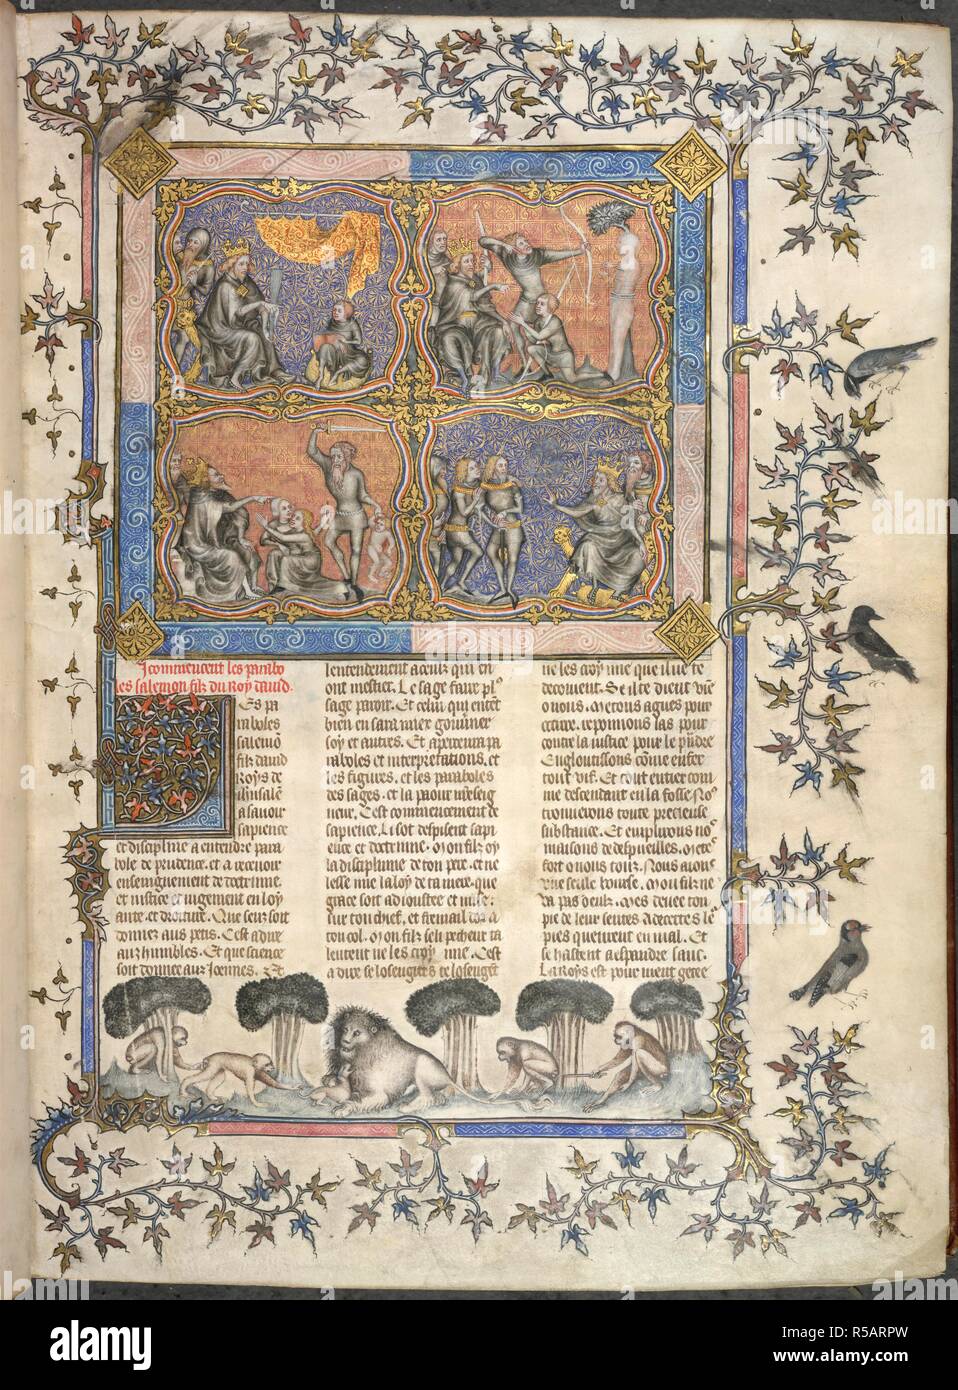 Icommencent les parabo
les salemon filz du Roy david.
Es pa
raboles
salemon
filz david
Roys de
iherusalem
a savoir
sapience
et discipline a entendre para
bole de prudence. et a recevoir
enseignement de doctrine.
et justice et jugement en loy
aute. et droiture. Que sens soit
donnez aus petis. C est a dire
aux humbles. Et que science
soit donnee aux joennes. Et
lentendement a ceulx qui en
ont mestier. Le sage fait plus
sage paroit. Et celui qui entent
bien en sara mex gouverner
soy et autres. Et apercevra pa
raboles et interpretations. et
les figures. et les paraboles
des sages. et la paour nreseig
neur. C est commencement de
sapience. Li sot despisent sapi
ence et doctrine. Mon filz oy
la discipline de ton pere. et ne
lesse mie la loy de ta mere. que
grace soit adjoustee et mise
sur ton chief. et fermail dor a
ton col. Mon filz se li pecheur ta
leutent ne les croy mie. C est
a dire se losengiers te losenget
ne les croy mie que il ne te
decoivent. Se il te dient vien
o nous. metons agues pour
occirre. reponnous las pour
contre la justice pour le prendre
Engloutissons come enfer
tout vif. Et tout entier com
me descendant en la fosse. Nos
trouverons toute precieuse
substance. Et emplirons nos
maisons de despueilles. met
sort o nous touz. Nous aions
une seule bourse. Mon filz ne
va pas o eulz. Mes devee ton
pie de leur sentes a decertes li
pies queurent en mal. Et
se hastent a espandre sanc.
La Roys est pour nient getee
alamy
Image ID: R5ARPW
www.alamy.com